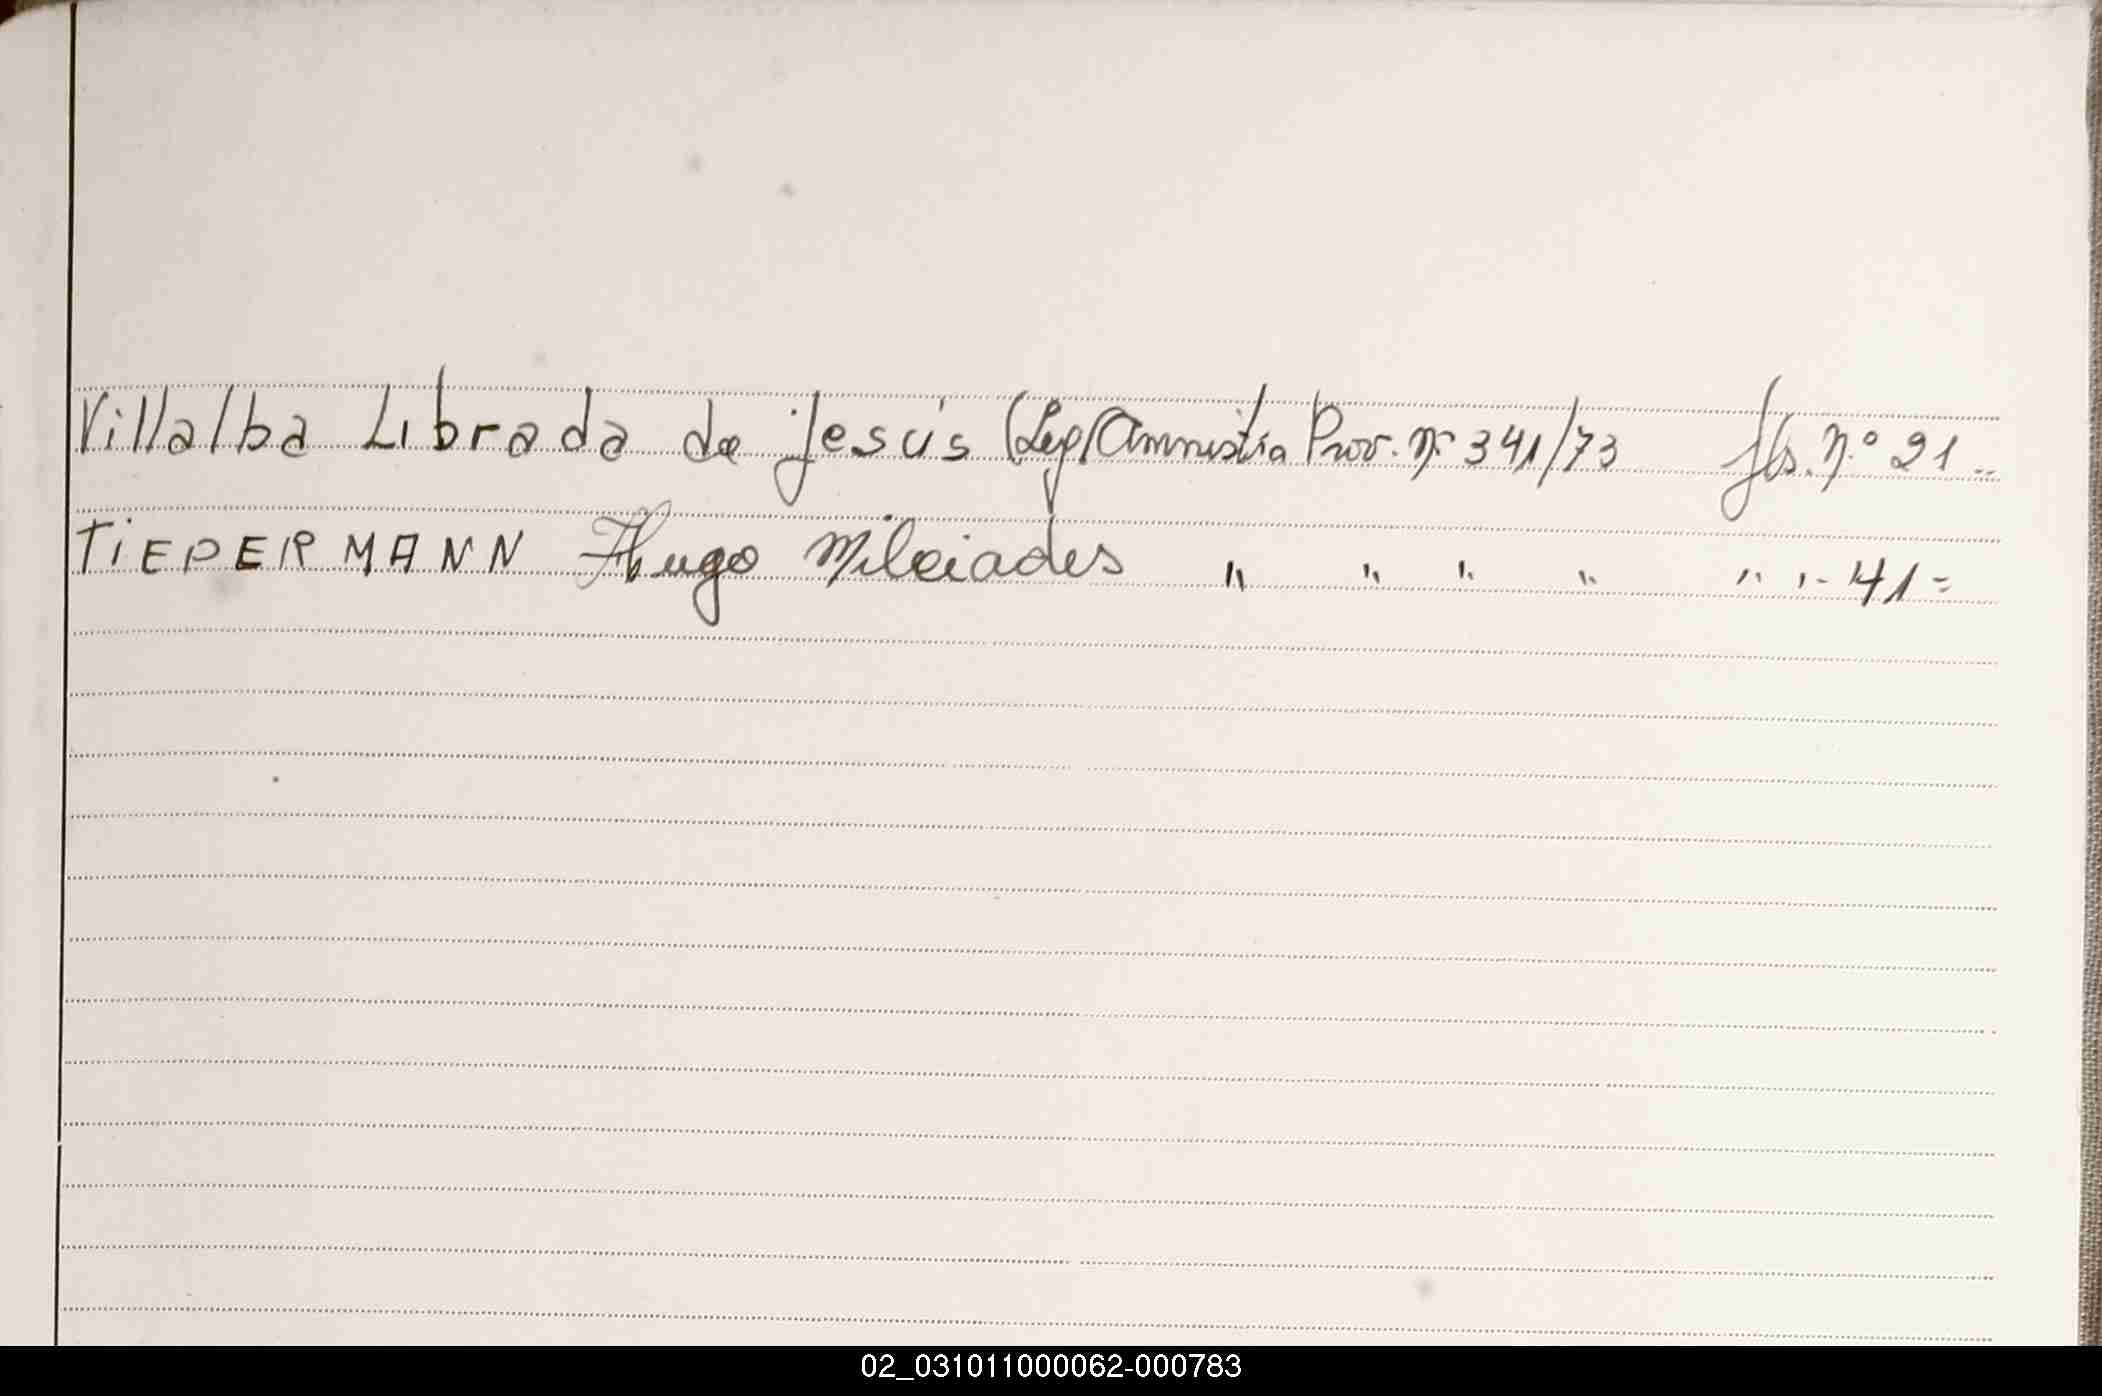 Villalba Librada de Jesús (Leg/Amnistía Prov. Nº 341/73 fls. Nº 21 --
TiEPERMANN Hugo Milciades " " " " " " 41 =
02_031011000062-000783